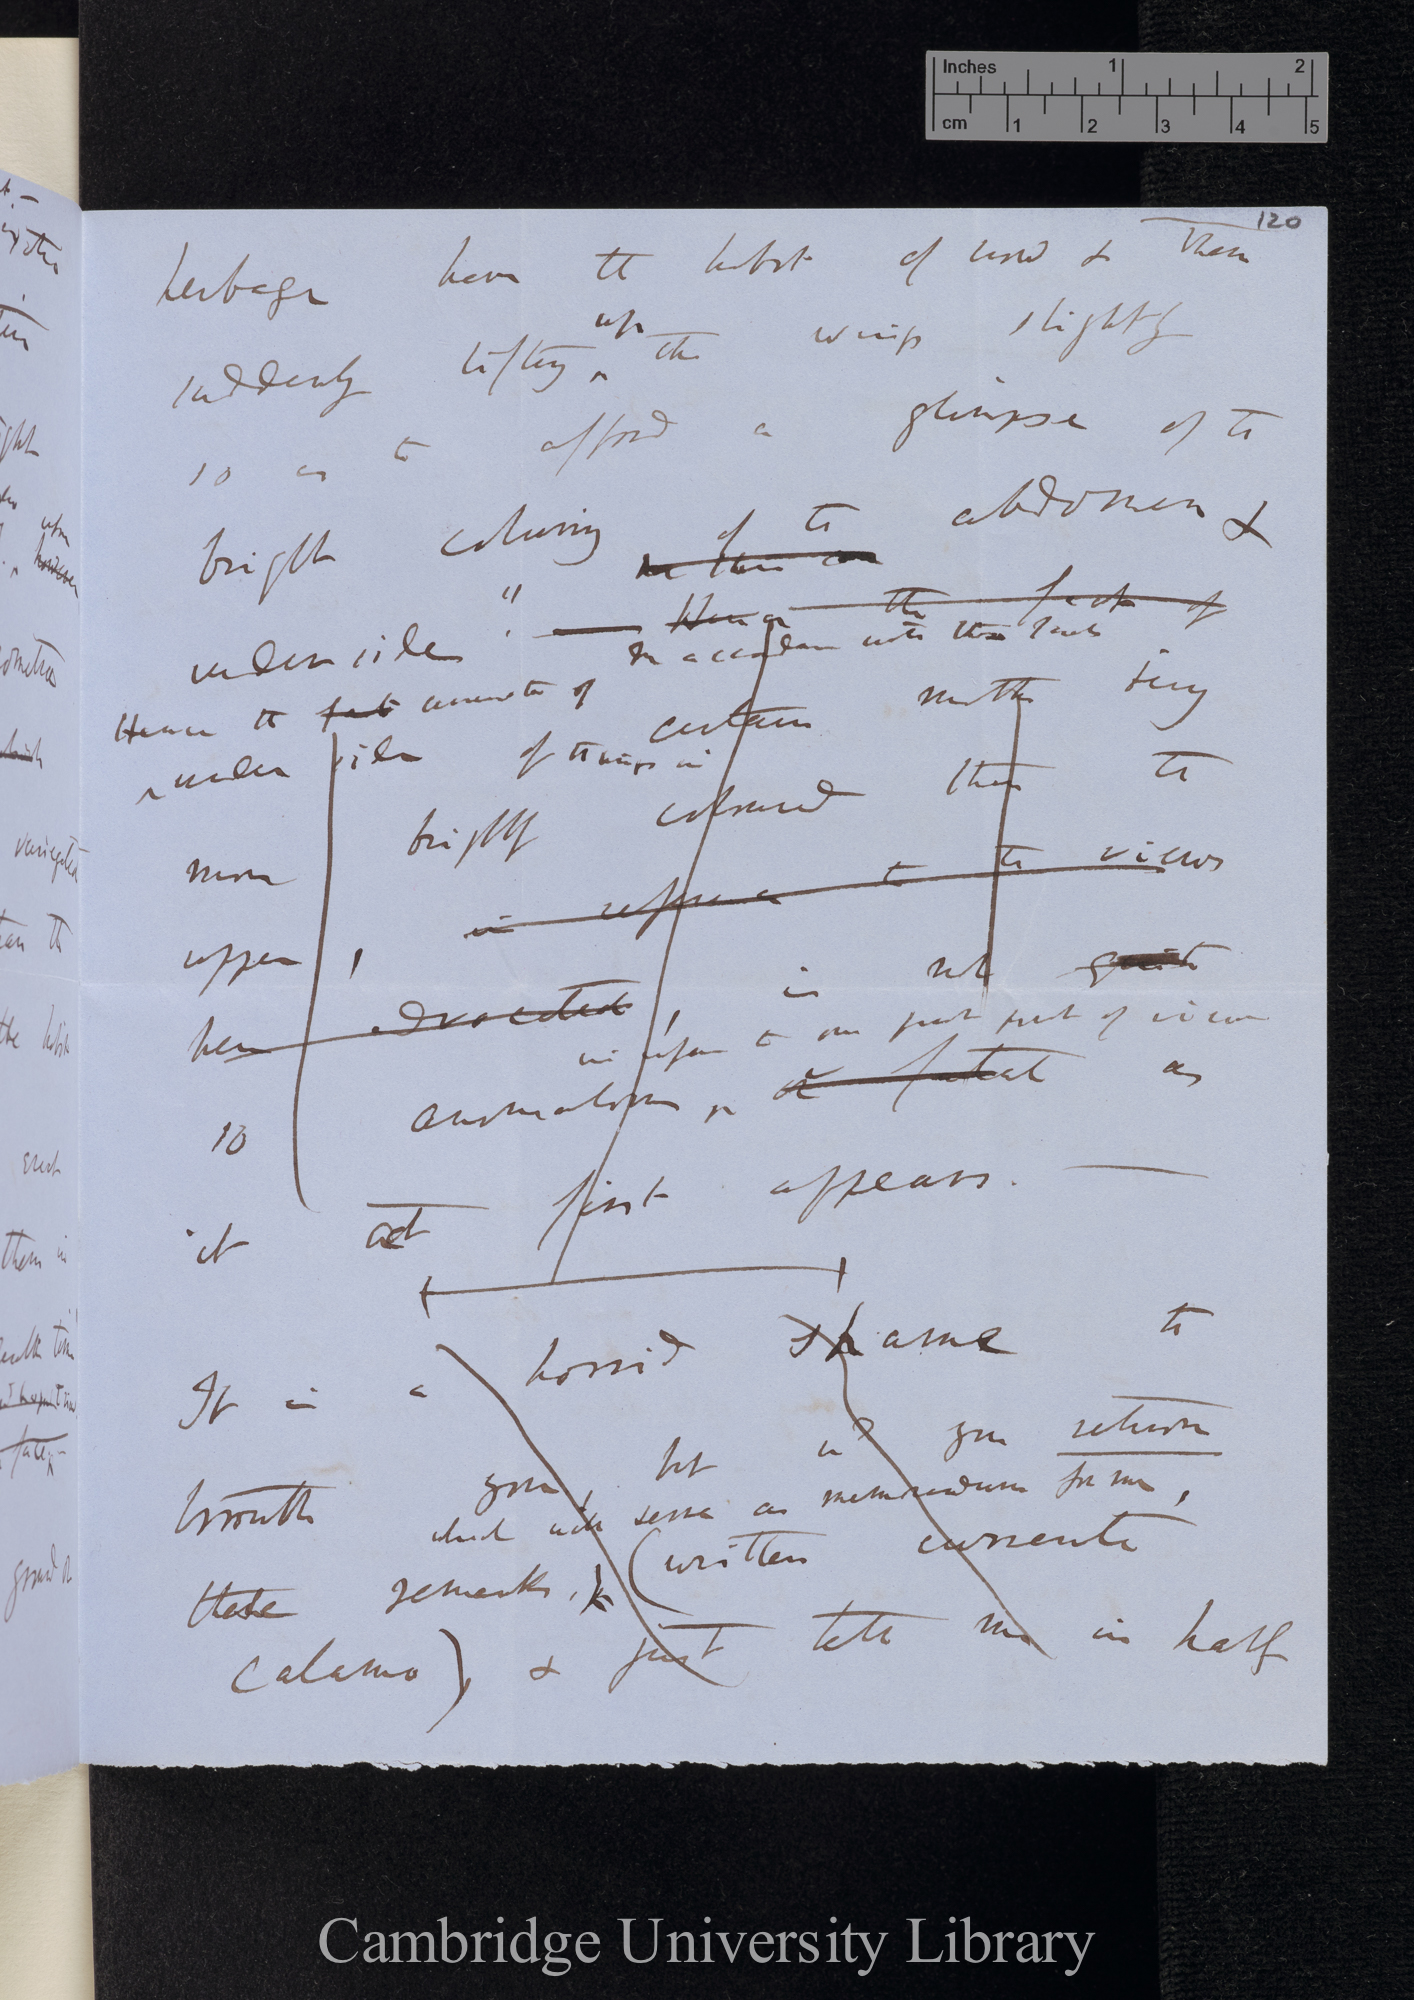 Inches 1 2
cm 1 2 3 4 5
120
herbage have the habit of now & then
up
suddenly lifting ^ the wings slightly
so as to afford a glimpse of the
bright colouring of the abdomen &
underside."
Hence the fact of
In accordance with these facts
Hence the fact of
under side of the wings in certain moths being
more brightly coloured than the
upper, in reference to the views
here advocated, is not quite
in regard to our point of view
so anomalous, as
it at first appears. —
It is a horrid shame to
trouble you, but will you return
which will serve as memorandum for me,
these remarks, (written currente
calamo), & just tell me in half
variegated
the habit
them in
Cambridge University Library